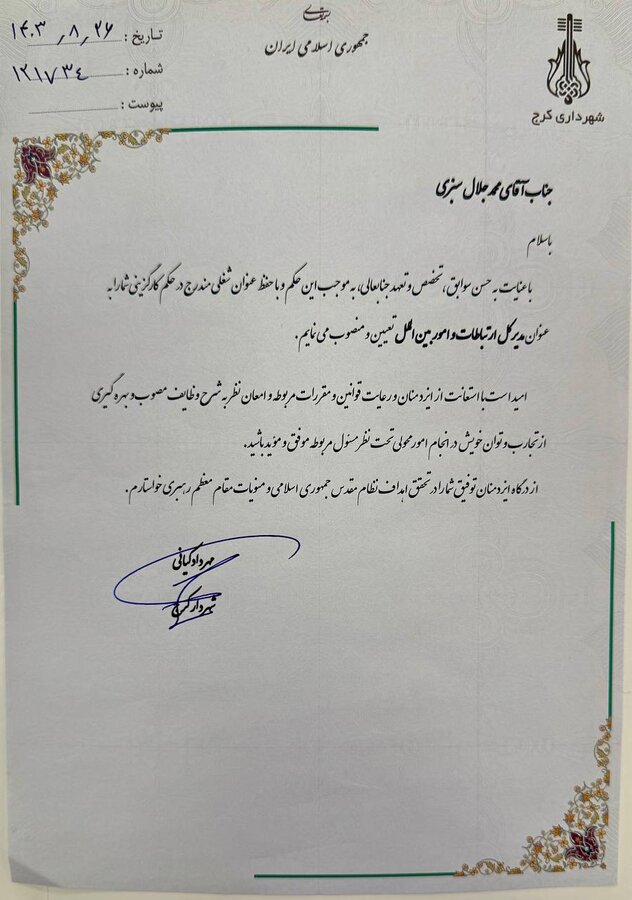 بسمه تعالی
جمهوری اسلامی ایران
شهرداری کرج
تاریخ : ۱۴۰۳٫۸٫۲۶
شماره : ۱۲۱۷۳۴
پیوست :
جناب آقای محمد جلال سبزی
باسلام
با عنایت به حسن سوابق، تخصص و تعهد جنابعالی، به موجب این حکم و با حفظ عنوان شغلی مندرج در حکم کارگزینی شما را به
عنوان مدیرکل ارتباطات و امور بین الملل تعیین و منصوب می نمایم.
امید است با استعانت از ایزد منان و رعایت قوانین و مقررات مربوطه و امعان نظر به شرح وظایف مصوب و بهره گیری
از تجارب و توان خویش در انجام امور محولی تحت نظر مسئول مربوطه موفق و مؤید باشید.
از درگاه ایزد منان توفیق شما را در تحقق اهداف نظام مقدس جمهوری اسلامی و منویات مقام معظم رهبری خواستارم.
مهرداد کیانی
شهردار کرج